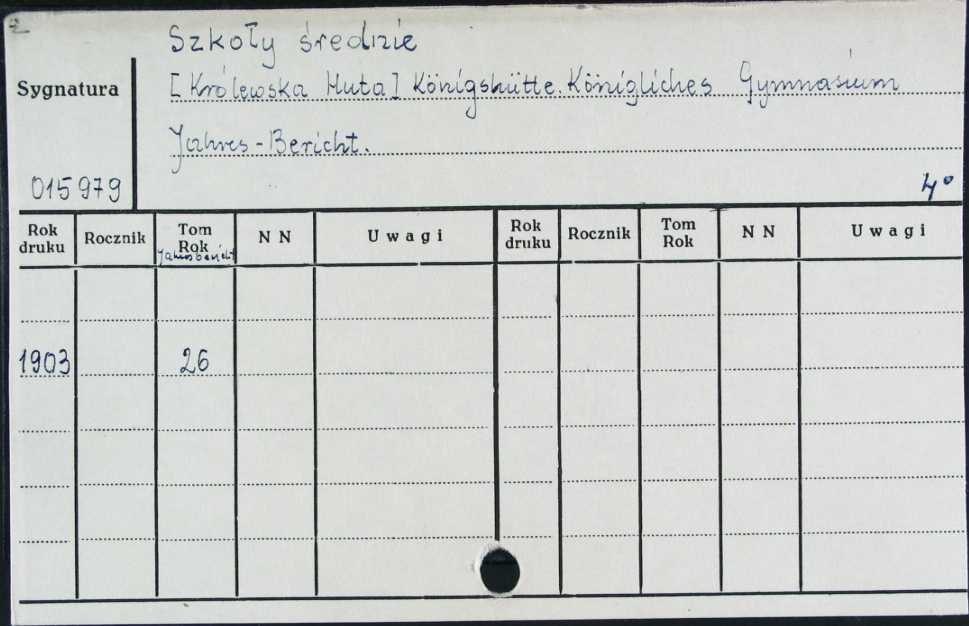 2
Szkoły średnie
Sygnatura
[Królewska Huta] Königshütte. Königliches Gymnasium
Jahres-Bericht.
015979
4°
Rok druku Rocznik Tom Rok Jahresbericht N N Uwagi Rok druku Rocznik Tom Rok N N Uwagi
1903 26